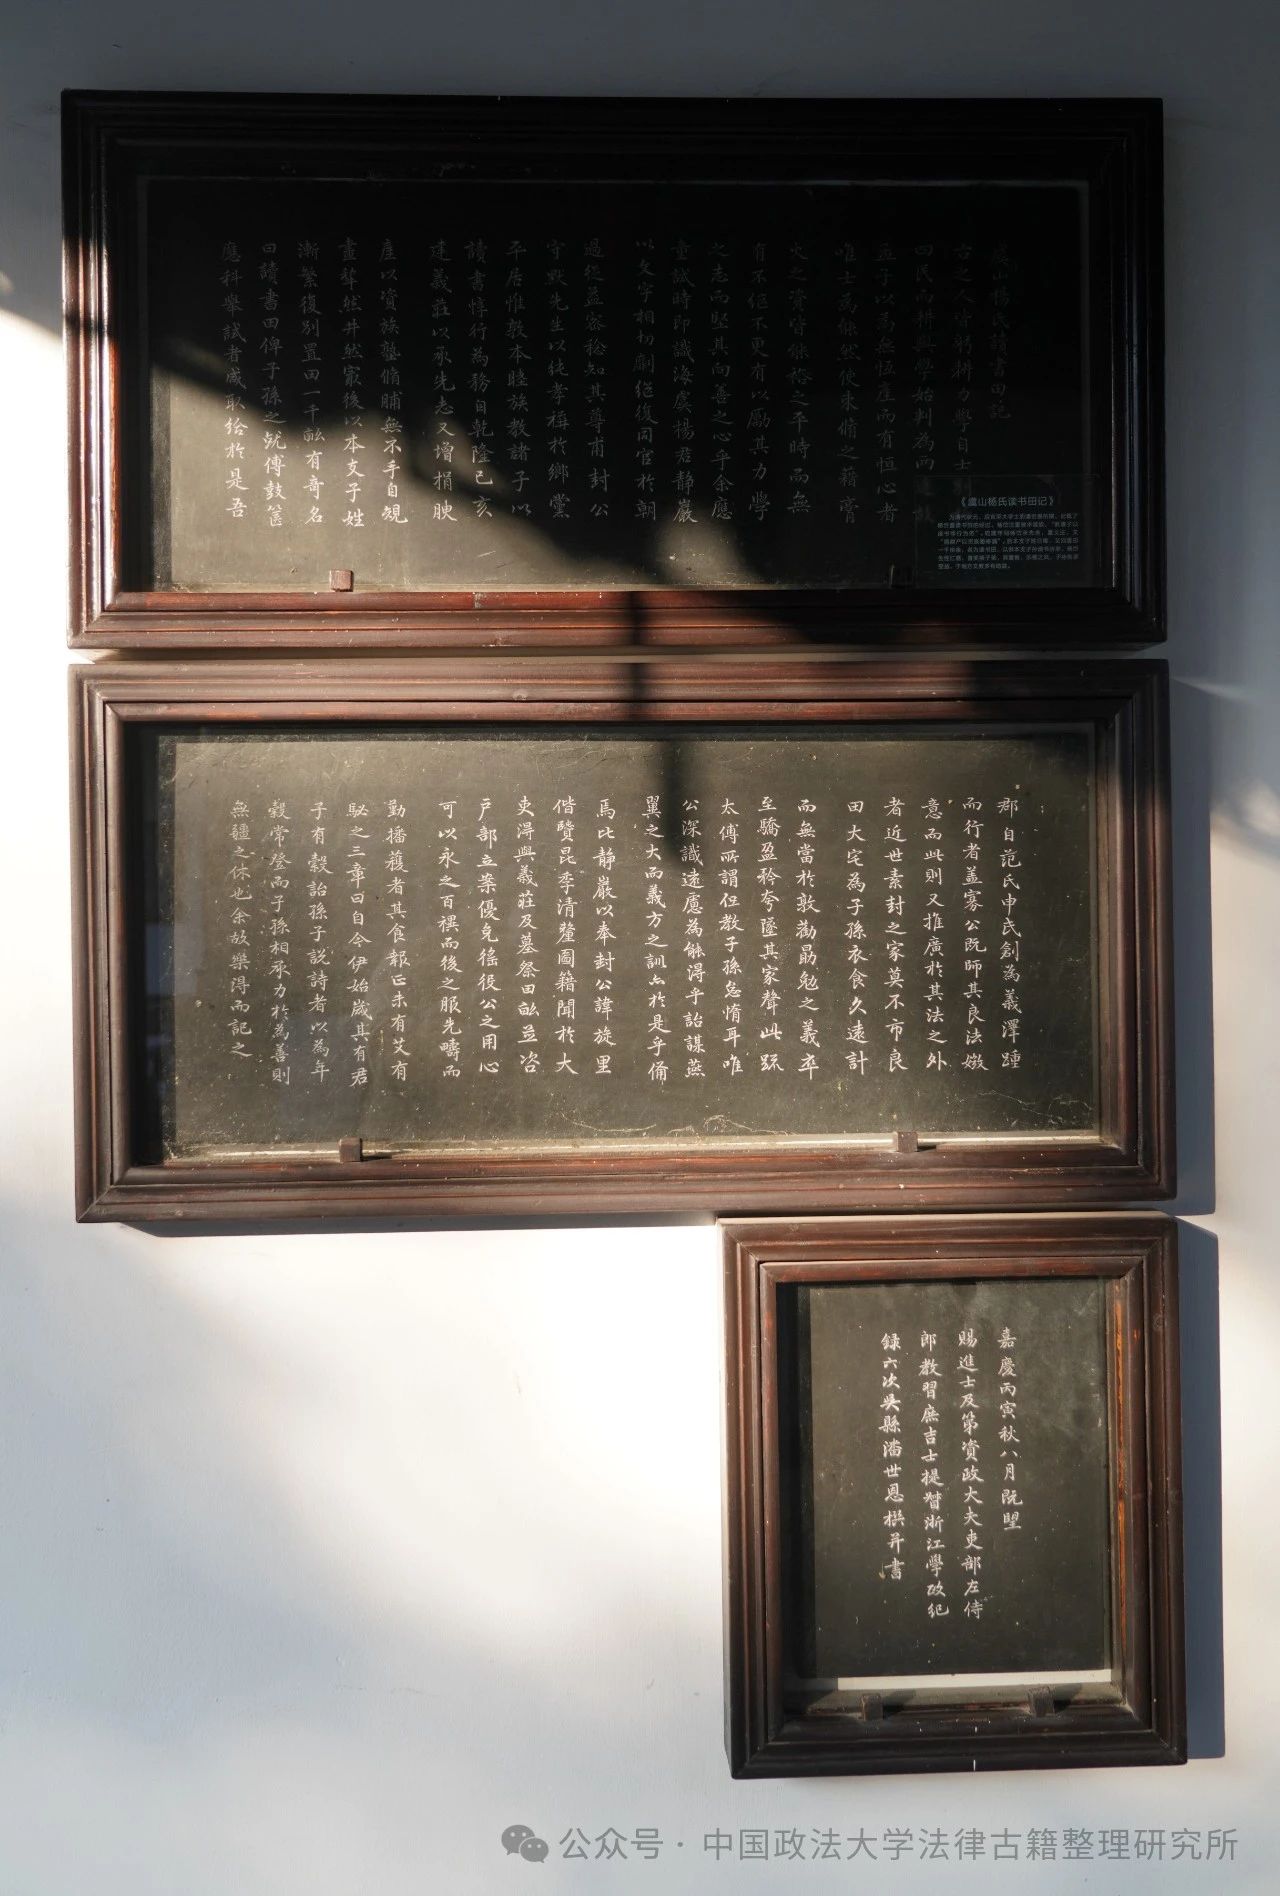 虞山楊氏讀書田記
古之人皆躬耕力學自士
四民而耕與學始判為兩
孟子以為無恆產而有恒心者
唯士為能然使束脩之藉膏
火之資皆能裕之平時而無
有不但不更有以勵其力學
之志而堅其向善之心乎余應
童試時即識海虞楊君靜巖
以文字相切劘繼復同官於朝
過從益密稔知其尊甫封公
守默先生以純孝稱於鄉黨
平居惟敦本睦族教諸子以
讀書惇行為務自乾隆己亥
建義莊以承先志又增捐腴
產以資族塾脩脯無不手自規
畫犖然井然最後以本支子姓
漸繁復別置田一千畝有奇名
曰讀書田俾子孫之就傅鼓篋
應科舉試者咸取給於是吾
《虞山杨氏读书田记》
郡自范氏申氏創為義澤踵
而行者蓋寡公既師其良法媺
意而此則又推廣於其法之外
者近世素封之家莫不市良
田大宅為子孫衣食久遠計
而無當於敦勸勗勉之義卒
至驕盈矜夸墜其家聲此疏
太傅所謂但教子孫怠惰耳唯
公深識遠慮為能得乎詒謀燕
翼之大而義方之訓亦於是乎備
焉比靜巖以奉封公諱旋里
偕賢昆季清釐圖籍聞於大
吏得與義莊及墓祭田畝並咨
戶部立案優免徭役公之用心
可以永之百禩而後之服先疇而
勤播穫者其食報正未有艾有
駜之三章曰自今伊始歲其有君
子有穀詒孫子說詩者以為年
穀常登而子孫相承力於為善則
無疆之休也余故樂得而記之
嘉慶丙寅秋八月既朢
賜進士及第資政大夫吏部左侍
郎教習庶吉士提督浙江學政紀
錄六次吳縣潘世恩撰并書
公众号·中国政法大学法律古籍整理研究所